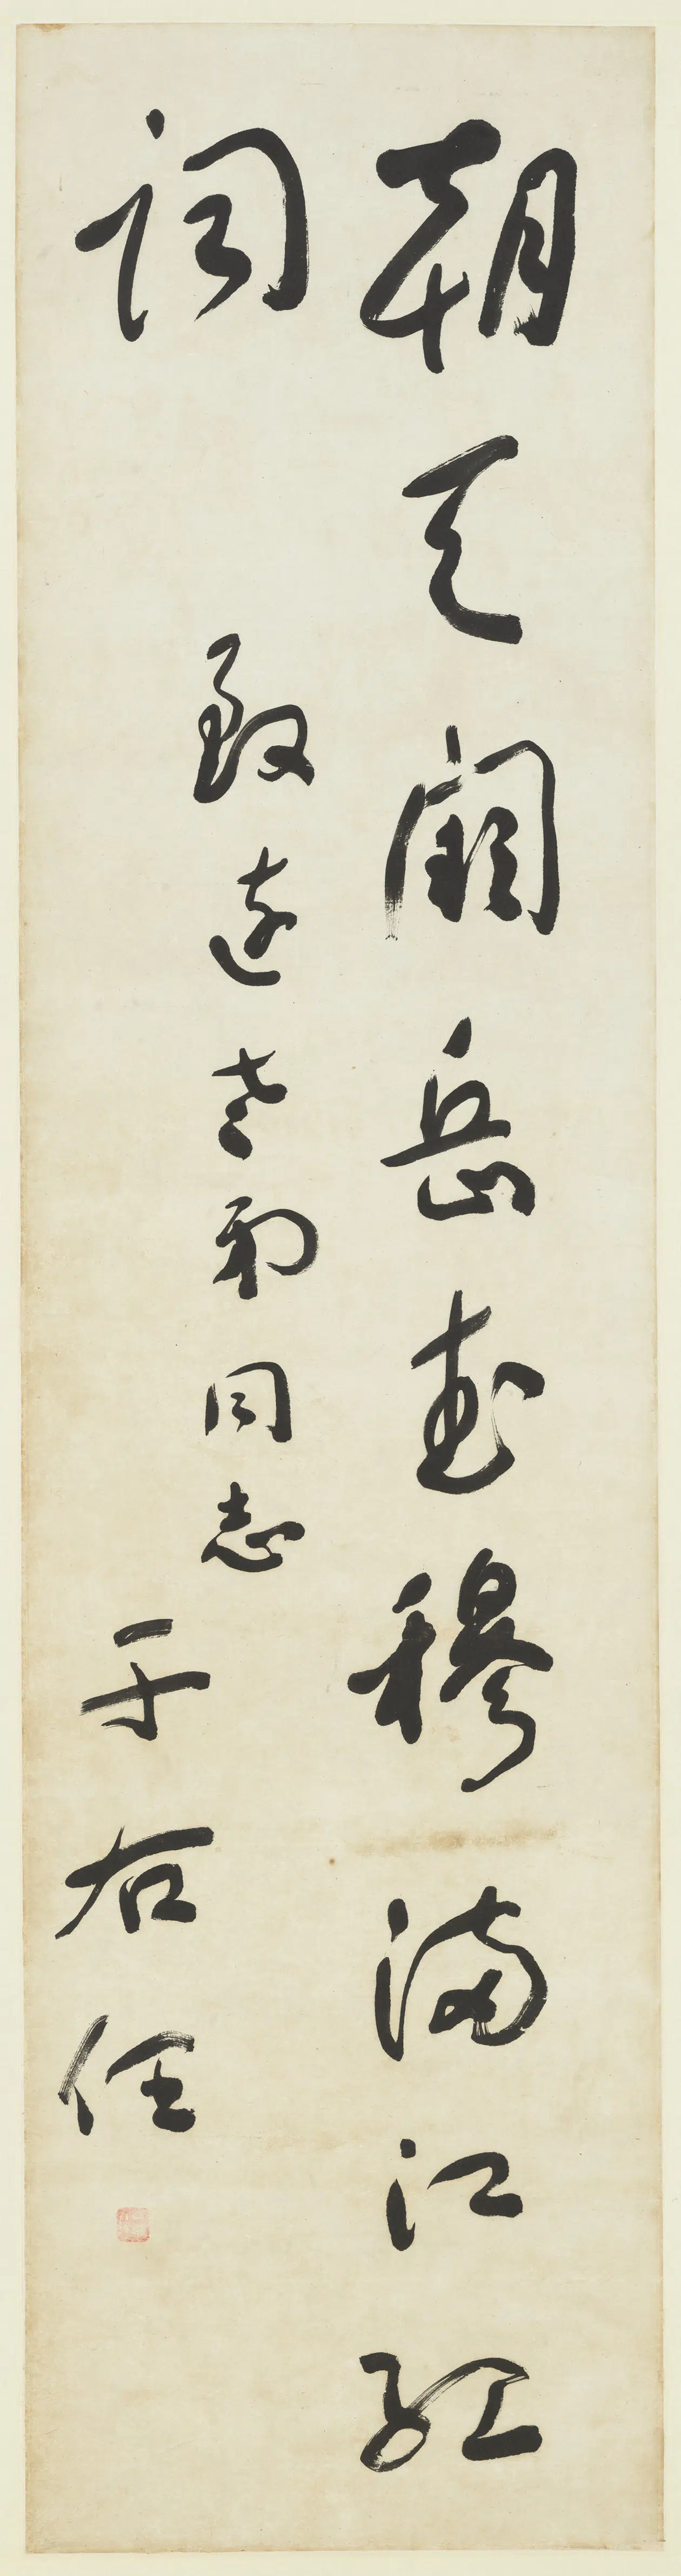 朝天闕岳武穆滿江紅
詞
致遠老弟同志
于右任